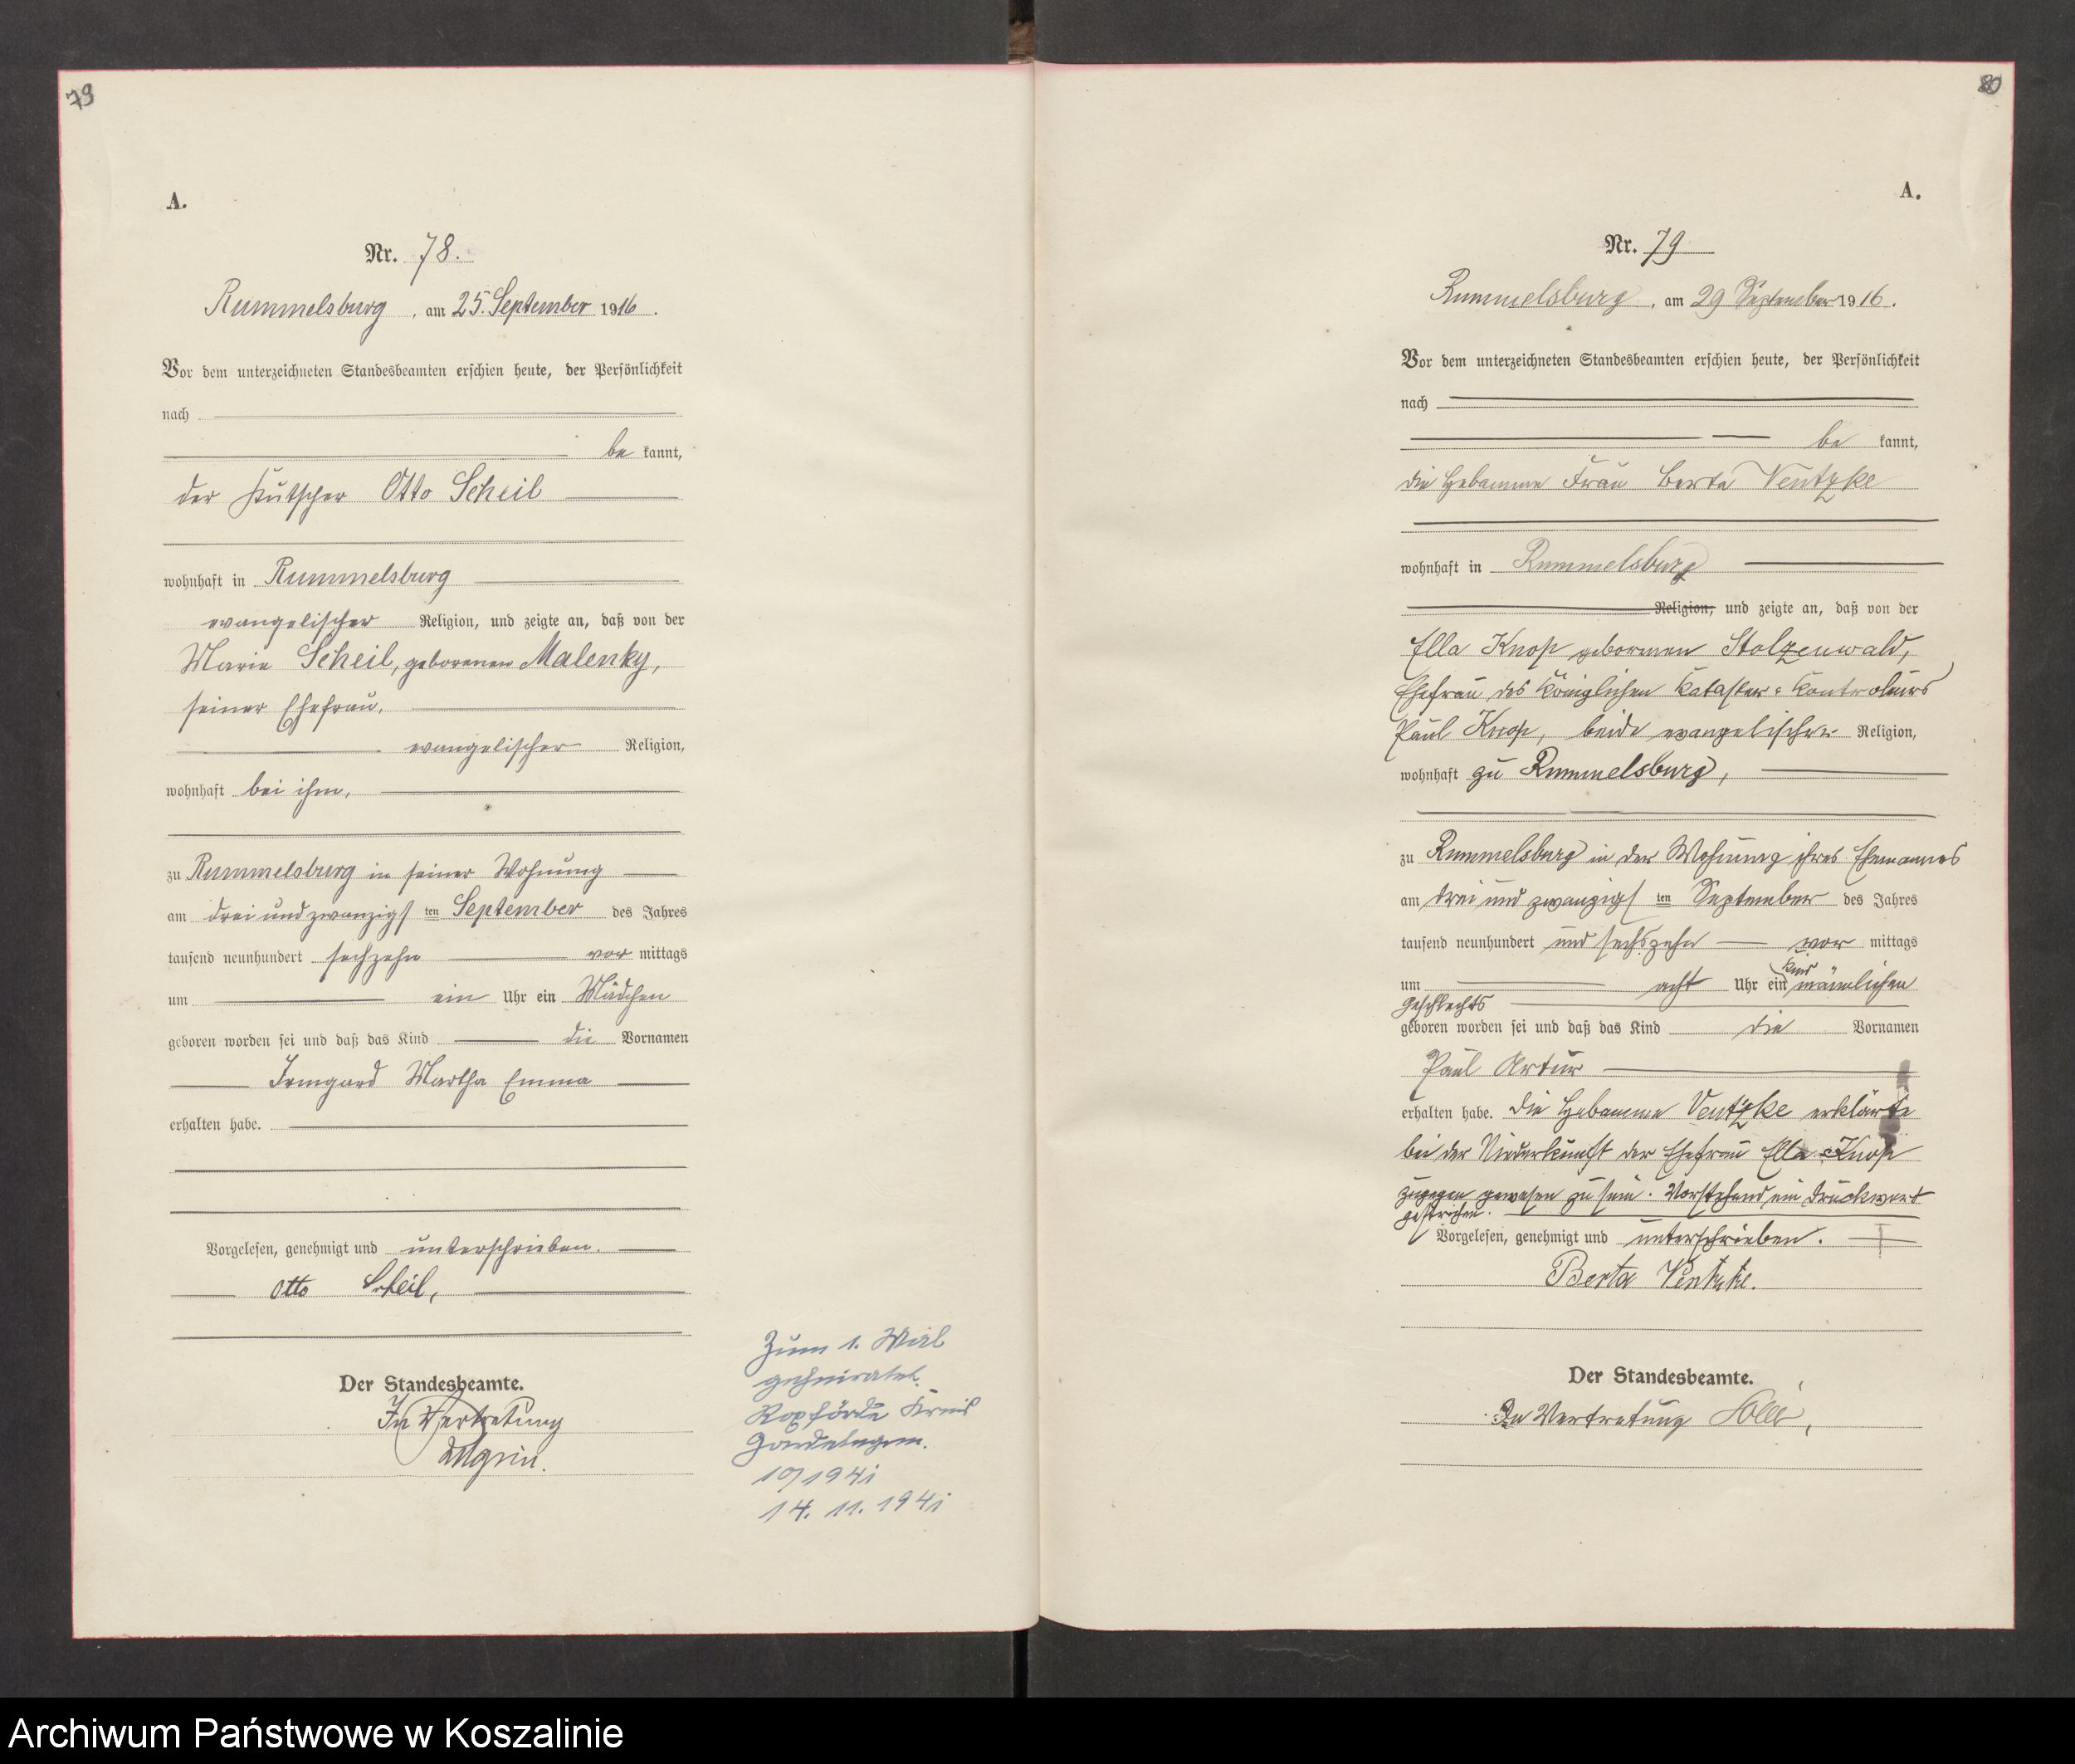 79
A.
Nr. 78.
Rummelsburg, am 25. September 1916.
Vor dem unterzeichneten Standesbeamten erschien heute, der Persönlichkeit
nach
be kannt,
der Kutscher Otto Scheil
wohnhaft in Rummelsburg
evangelischer Religion, und zeigte an, daß von der
Marie Scheil, geborenen Malenky,
seiner Ehefrau,
evangelischer Religion,
wohnhaft bei ihm,
zu Rummelsburg in seiner Wohnung
am drei und zwanzigsten September des Jahres
tausend neunhundert sechzehn vor mittags
um ein Uhr ein Mädchen
geboren worden sei und daß das Kind die Vornamen
Irmgard Martha Emma
erhalten habe.
Vorgelesen, genehmigt und unterschrieben.
Otto Scheil,
Der Standesbeamte.
In Vertretung
Zum 1. Mal
geheiratet.
Kreis
Gardelegen.
10/1941
14. 11. 1941
80
A.
Nr. 79
Rummelsburg, am 29 September 1916.
Vor dem unterzeichneten Standesbeamten erschien heute, der Persönlichkeit
nach
be kannt,
die Hebamme Frau Berta Ventzke
wohnhaft in Rummelsburg
Religion, und zeigte an, daß von der
Ella Knop geborenen Stolzenwald,
Ehefrau des Königlichen Kataster-Kontroleurs
Paul Knop, beide evangelischer Religion,
wohnhaft zu Rummelsburg,
zu Rummelsburg in der Wohnung ihres Ehemannes
am drei und zwanzigsten September des Jahres
tausend neunhundert und sechszehn vor mittags
um acht Uhr ein Kind männlichen
Geschlechts
geboren worden sei und daß das Kind die Vornamen
Paul Artur
erhalten habe. Die Hebamme Ventzke erklärte
bei der Niederkunft der Ehefrau Ella Knop
zugegen gewesen zu sein. Vorstehend ein Druckwort
gestrichen.
Vorgelesen, genehmigt und unterschrieben.
Berta Ventzke.
Der Standesbeamte.
In Vertretung
Archiwum Państwowe w Koszalinie